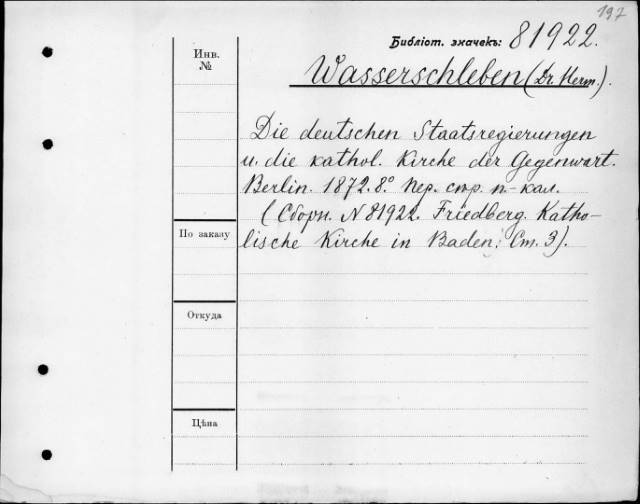 197
Библіот. значекъ: 81922.
Инв.
№
Wasserschleben (Dr. Herm.).
Die deutschen Staatsregierungen
u. die kathol. Kirche der Gegenwart.
Berlin. 1872. 8°. Пер. стр. п.-кал.
(Сборн. N 81922. Friedberg. Katho-
По заказу
lische Kirche in Baden. Ст. 3).
Откуда
Цѣна